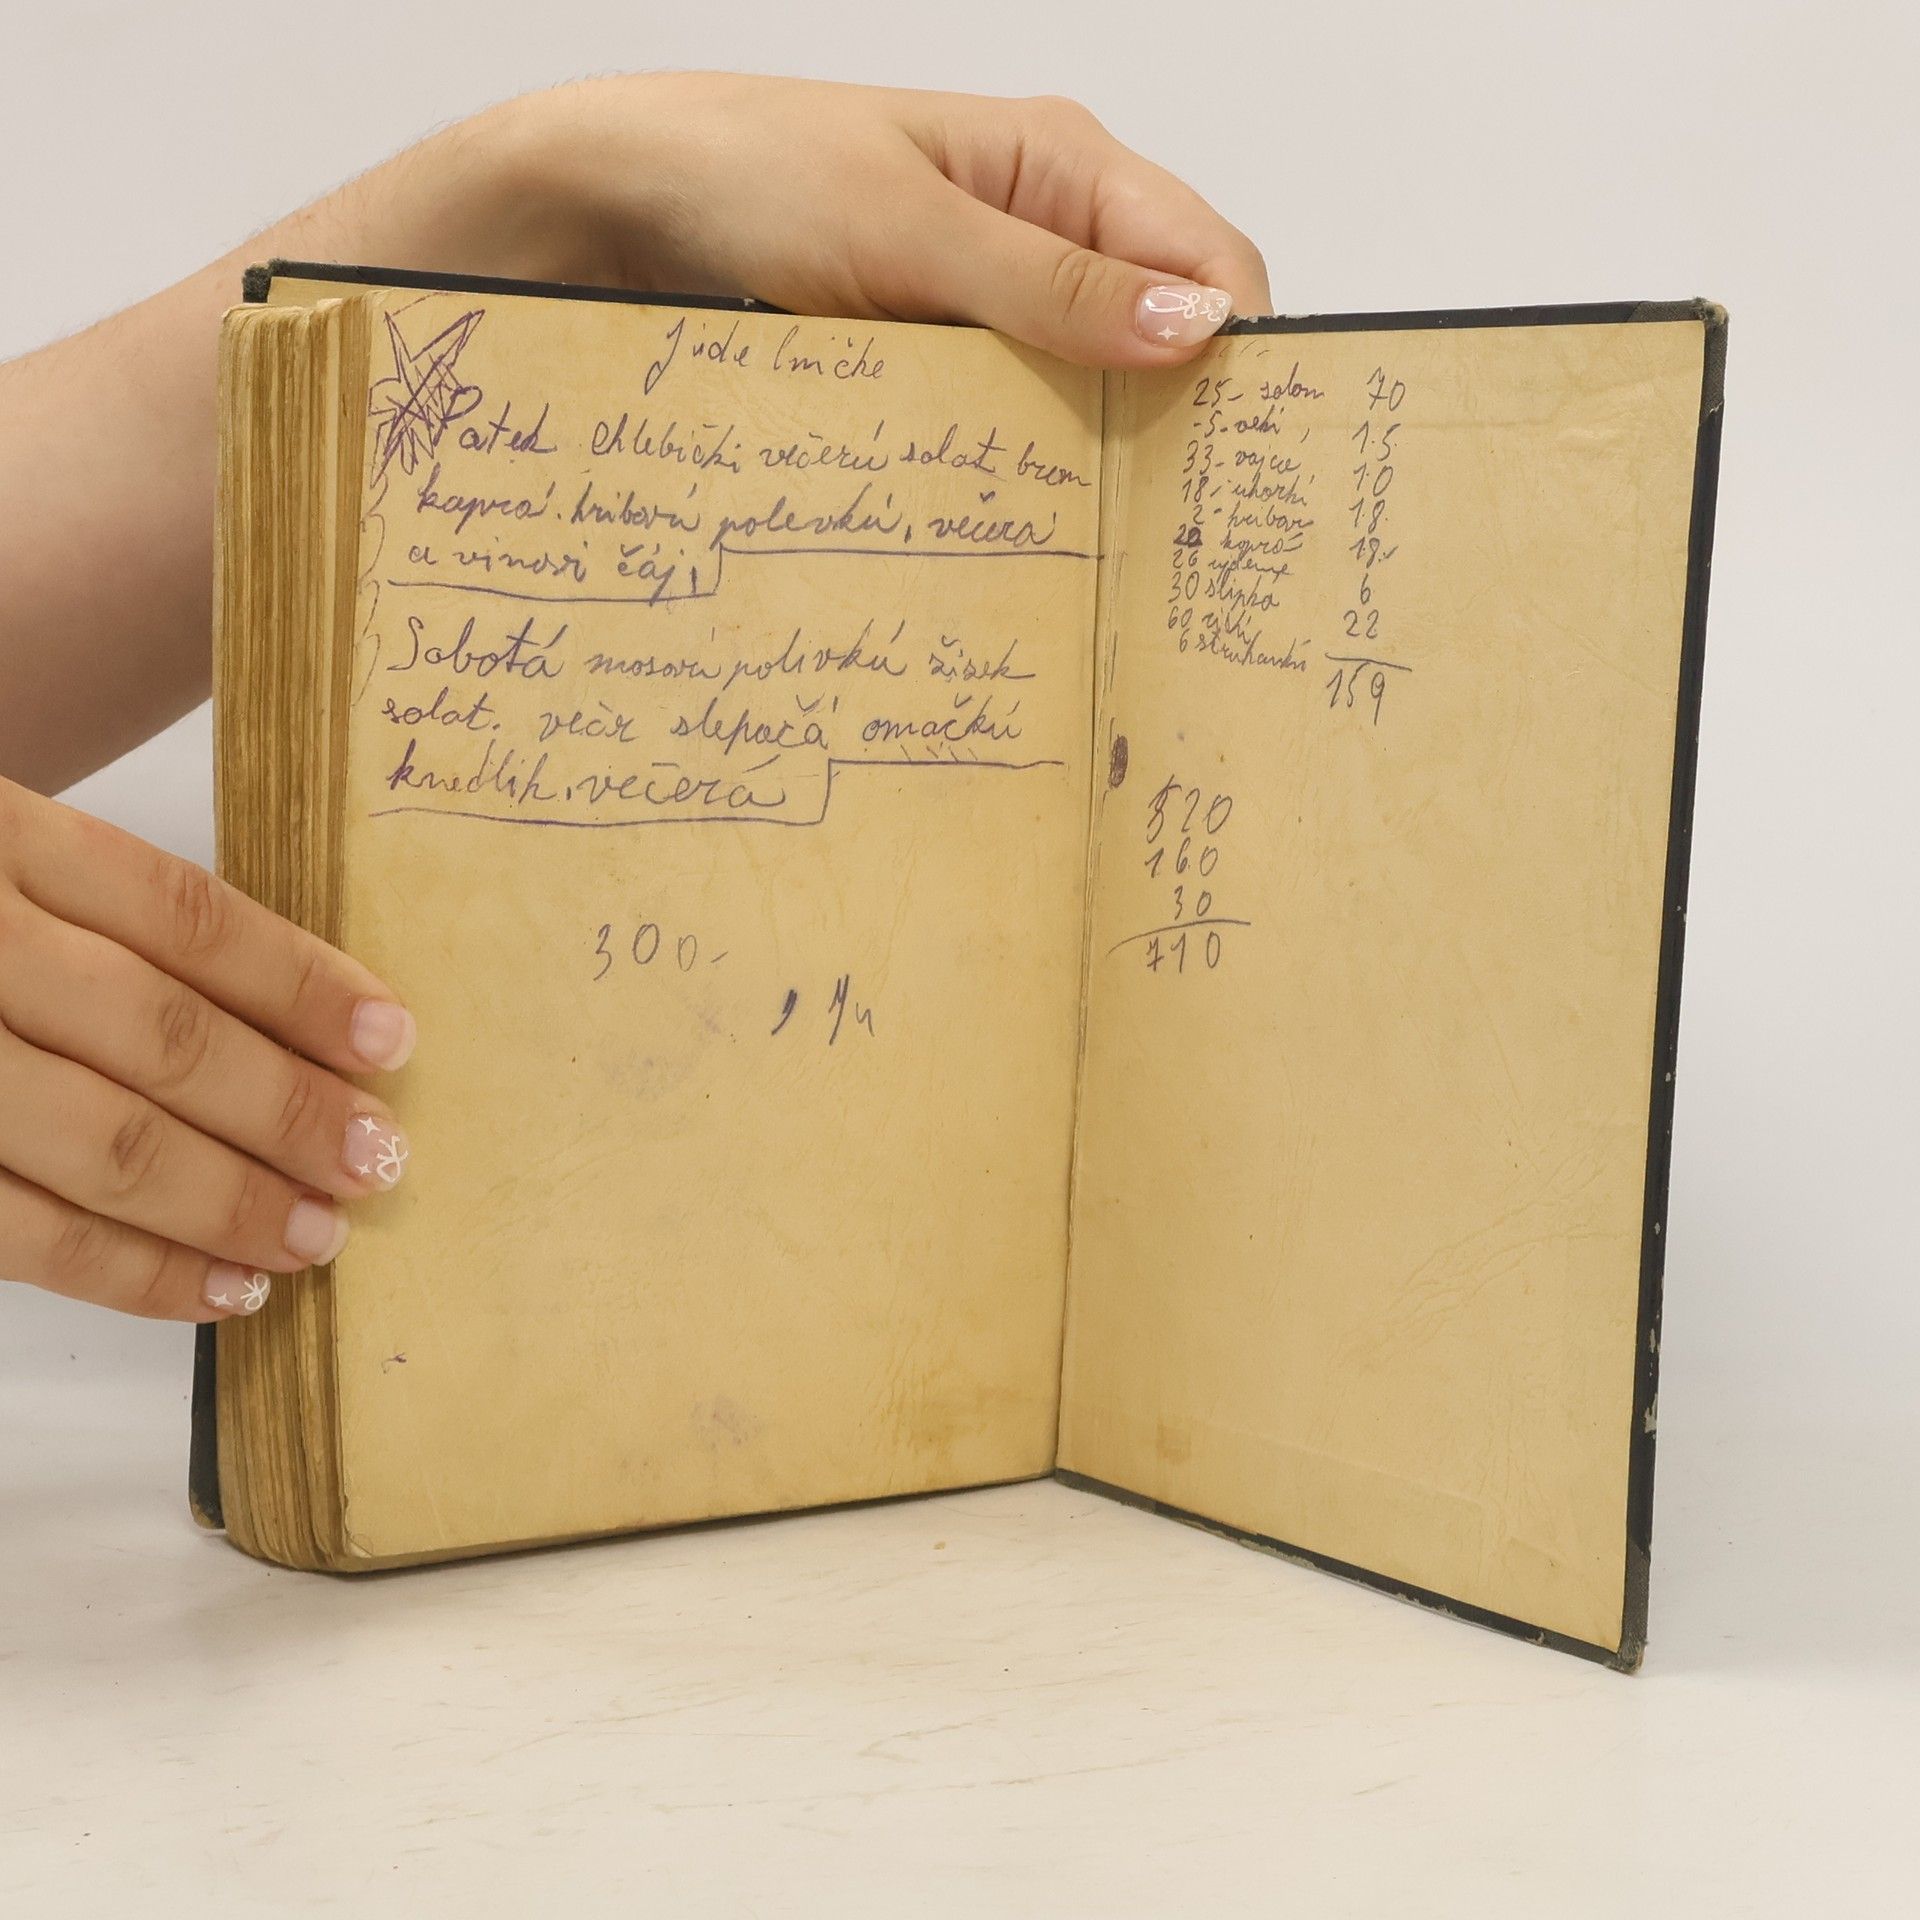 Jide lničke
Patek Chlebički večerú solat brem
kaprá. hribovú polevkú, večerá
a vinovi čáj,
Sobotá mosovú polivkú žisek
solat. večr slepačá omačkú
knedlik, večerá
300-
25- solom 70
-5- veki, 15
33- vajce, 10
18- uhorki 18
2- hribov 18
20 kaprá 6
26 22
30 slipka 159
60
6 struhankú
520
160
30
710